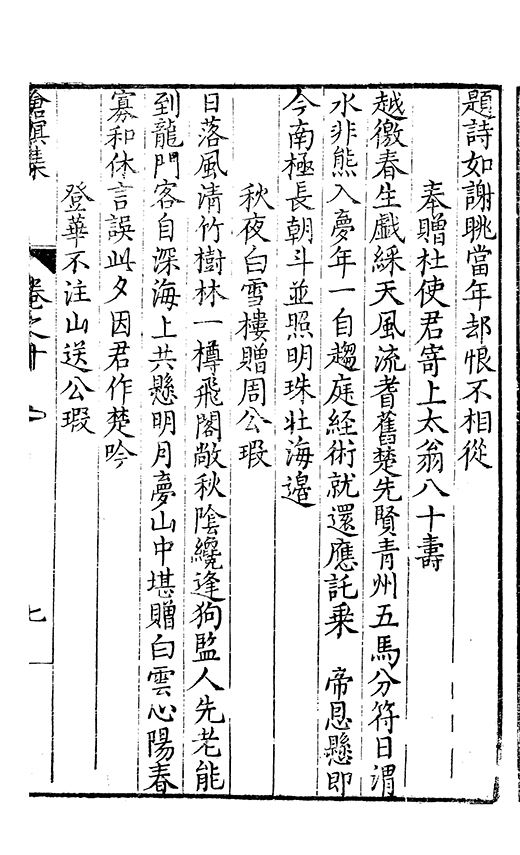 題詩如謝眺當年却恨不相從
奉贈杜使君寄上太翁八十壽
越徼春生戲綵天風流耆舊楚先賢青州五馬分符日渭
水非熊入夢年一自趨庭經術就還應託乗　帝恩懸即
今南極長朝斗並照明珠壯海邉
秋夜白雪樓贈周公瑕
日落風清竹樹林一樽飛閣敞秋陰纔逢狗監人先老能
到龍門客自深海上共懸明月夢山中堪贈白雲心陽春
寡和休言誤此夕因君作楚吟
登華不注山送公瑕
滄溟集
卷之十
七